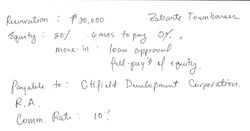 Reservation : ₱30,000 Zabarte Townhomes
Equity : 20% 6 mos to pay 0%,
move-in : loan approval
full-pay't of equity.
Payable to : Citifield Development Corporation.
R.A.
Comm. Rate : 10%